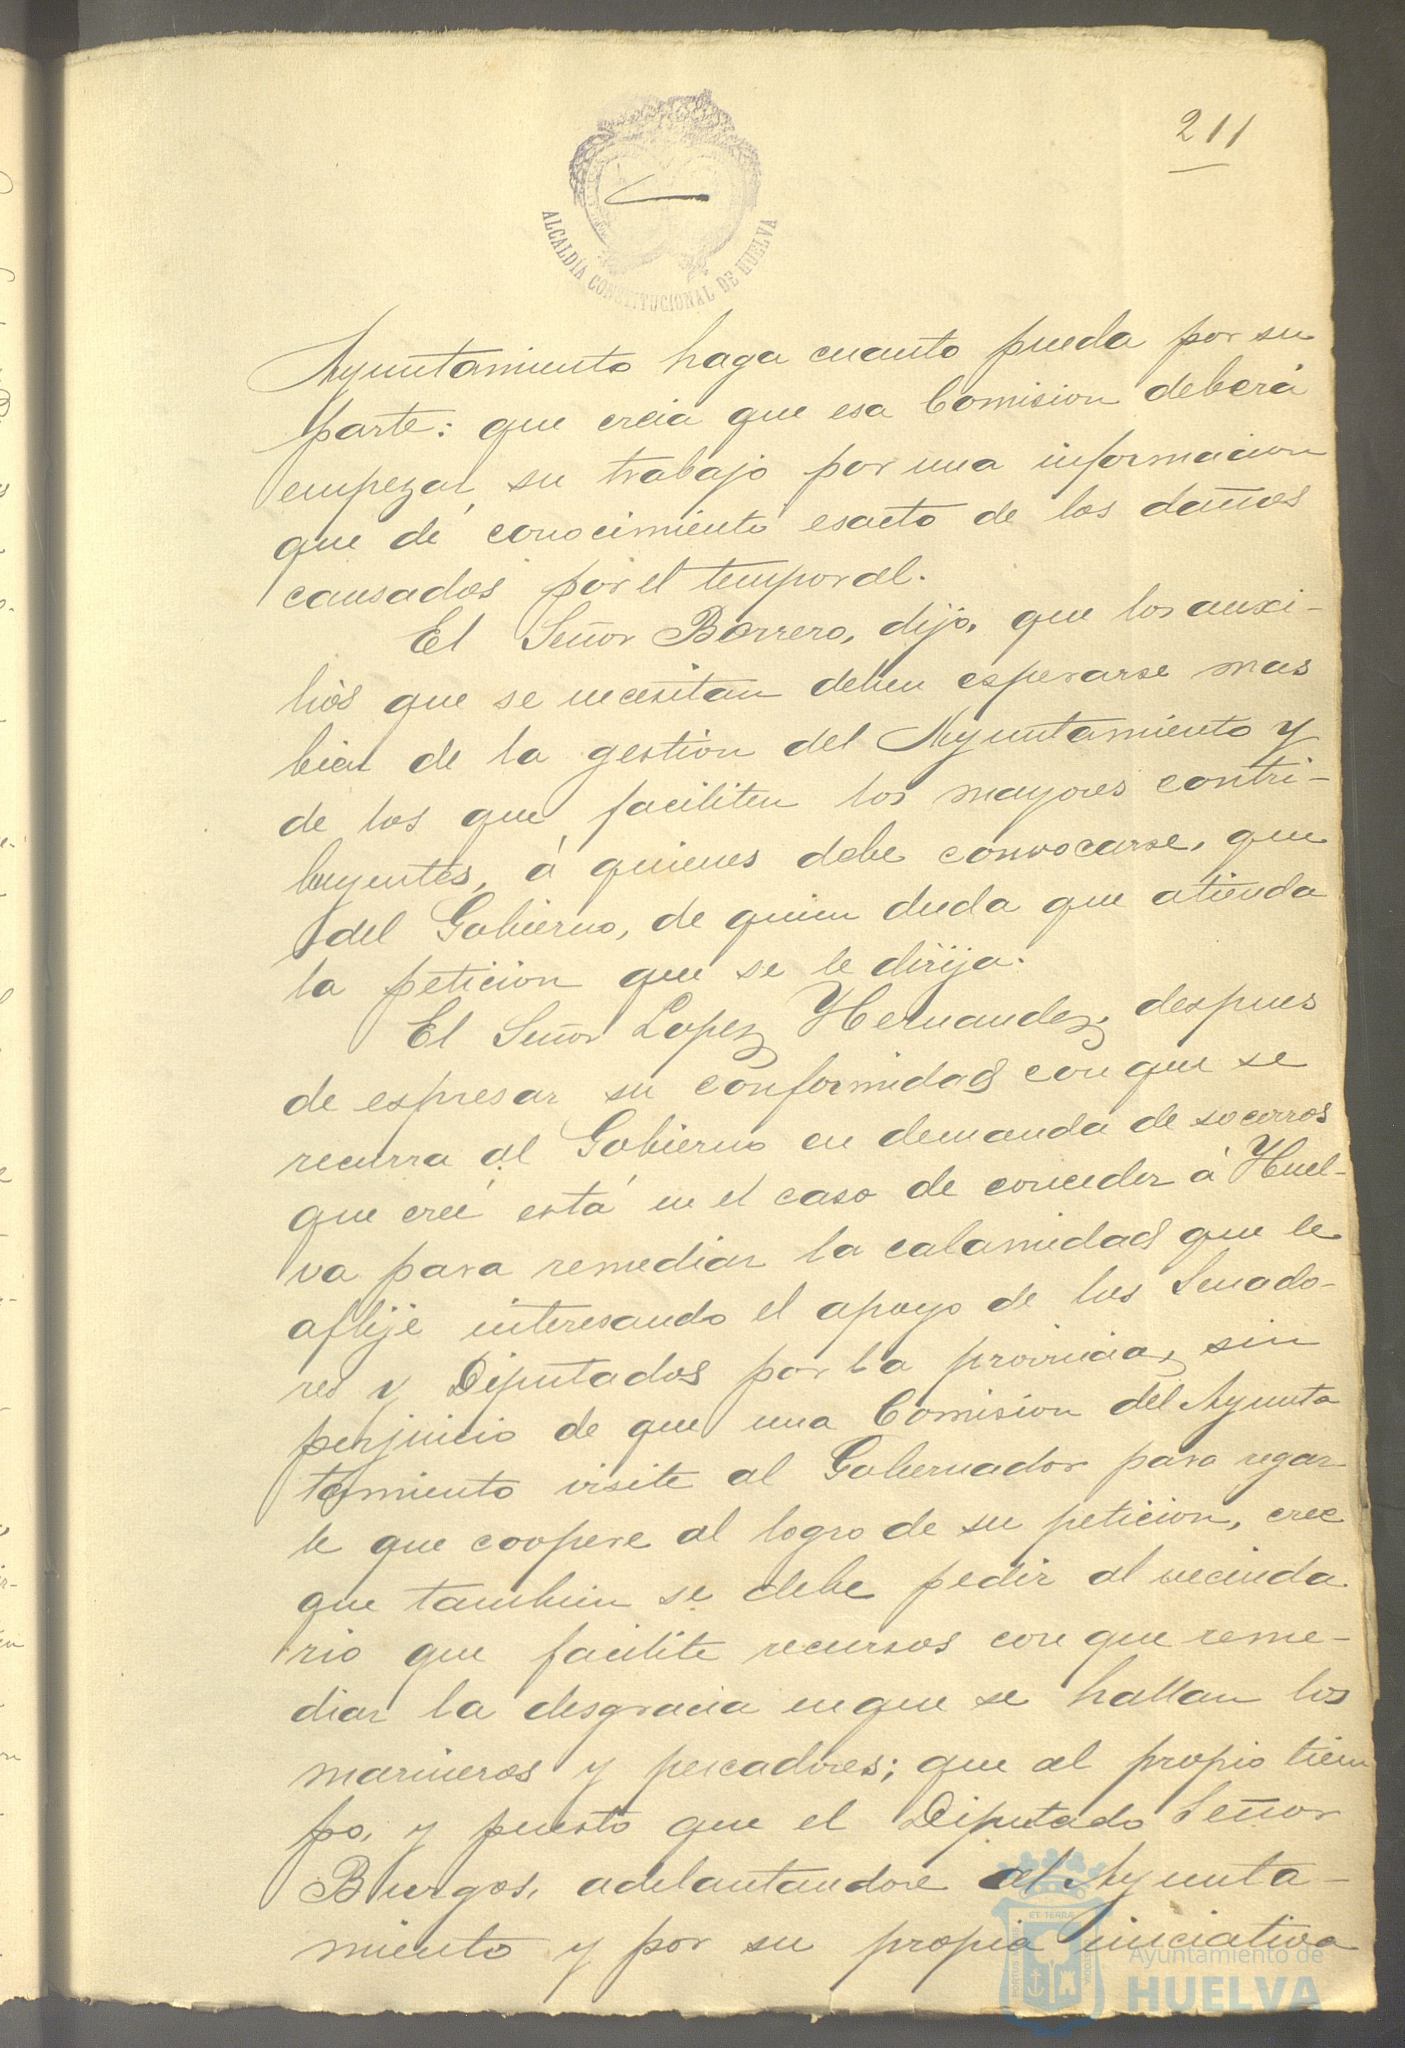 211
ALCALDÍA CONSTITUCIONAL DE HUELVA
Ayuntamiento haga cuanto pueda por su
parte: que creia que esa Comision deberá
empezar su trabajo por una informacion
que dé conocimiento esacto de los daños
causados por el temporal.
El Señor Borrero, dijo, que los auxi-
lios que se necesitan deben esperarse mas
bien de la gestion del Ayuntamiento y
de los que faciliten los mayores contri-
buyentes, á quienes debe convocarse, que
del Gobierno, de quien duda que atienda
la peticion que se le dirija.
El Señor Lopez Hernandez, despues
de espresar su conformidad con que se
recurra al Gobierno en demanda de socorros
que creé está en el caso de conceder á Huel-
va para remediar la calamidad que le
aflije interesando el apoyo de los Senado-
res y Diputados por la provincia, sin
perjuicio de que una Comision del Ayunta
tamiento visite al Gobernador para rogar
le que coopere al logro de su peticion, cree
que tambien se debe pedir al vecinda
rio que facilite recursos con que reme-
diar la desgracia en que se hallan los
marineros y pescadores; que al propio tiem
po, y puesto que el Diputado Señor
Burgos, adelantandose al Ayunta-
miento y por su propia iniciativa
Ayuntamiento de
HUELVA